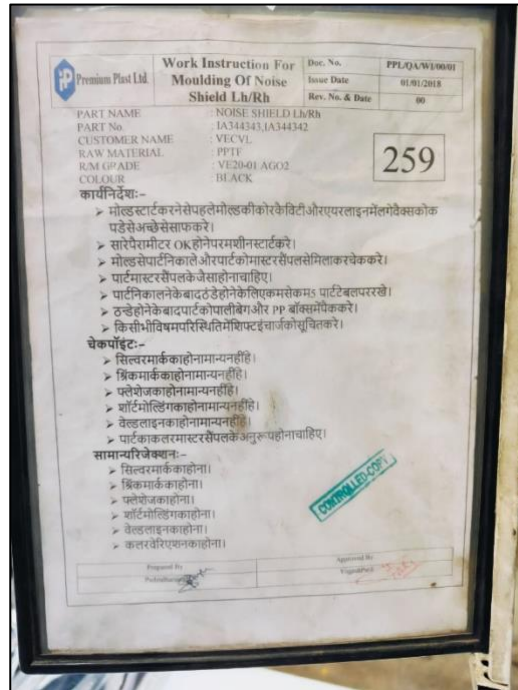 Premium Plast Ltd.
Work Instruction For
Moulding Of Noise
Shield Lh/Rh
Doc. No. PPL/QA/WI/00/01
Issue Date 01/01/2018
Rev. No. & Date 00
PART NAME : NOISE SHIELD Lh/Rh
PART No. : IA344343,IA344342
CUSTOMER NAME : VECVL
RAW MATERIAL : PPTF
R/M GRADE : VE20-01 AGO2
COLOUR : BLACK
259
कार्यनिर्देशः-
➢ मोल्डस्टार्टकरनेसेपहलेमोल्डकीकोरकेविटीऔरएयरलाइनमेंलगेवैक्सकोक
पडेसेअच्छेसेसाफकरे।
➢ सारेपैरामीटर OKहोनेपरमशीनस्टार्टकरे।
➢ मोल्डसेपार्टनिकालेऔरपार्टकोमास्टरसैंपलसेमिलाकरचेककरे।
➢ पार्टमास्टरसैंपलकेजैसाहोनाचाहिए।
➢ पार्टनिकालनेकेबादठंडेहोनेकेलिएकमसेकम5 पार्टटेबलपररखे।
➢ ठन्डेहोनेकेबादपार्टकोपालीबेगऔर PP बॉक्समेंपैककरे।
➢ किसीभीविषमपरिस्थितिमेंशिफ्टइंचार्जकोसूचितकरे।
चेकपॉइंटः-
➢ सिल्वरमार्ककाहोनामान्यनहींहे।
➢ श्रिंकमार्ककाहोनामान्यनहींहे।
➢ फ्लेशेजकाहोनामान्यनहींहे।
➢ शॉर्टमोल्डिंगकाहोनामान्यनहींहे।
➢ वेल्डलाइनकाहोनामान्यनहींहे।
➢ पार्टकाकलरमास्टरसैंपलकेअनुरूपहोनाचाहिए।
सामान्यरिजेक्शनः-
➢ सिल्वरमार्ककाहोना।
➢ श्रिंकमार्ककाहोना।
➢ फ्लेशेजकाहोना।
➢ शॉर्टमोल्डिंगकाहोना।
➢ वेल्डलाइनकाहोना।
➢ कलरवेरिएशनकाहोना।
CONTROLLED COPY
Prepared By
Approved By